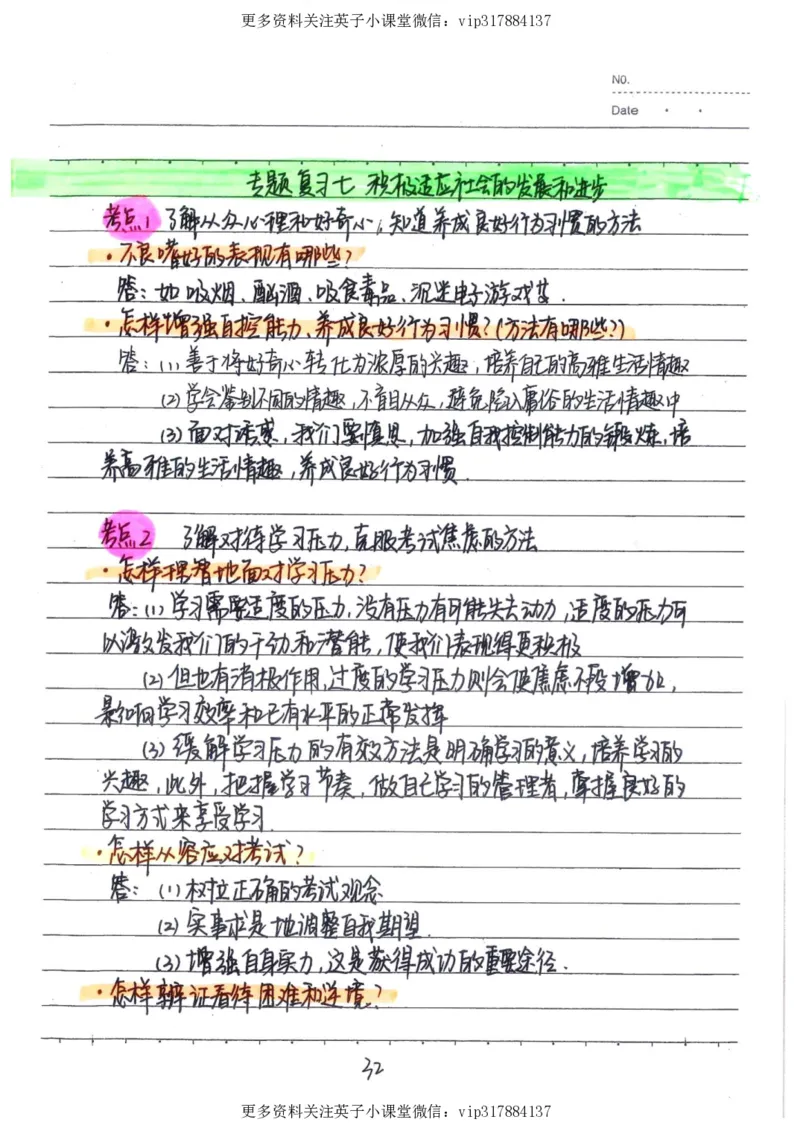 更多资料关注英子小课堂微信：vip317884137
No.
Date
专题复习七 积极适应社会的发展和进步
考点1 了解从众心理和好奇心，知道养成良好行为习惯的方法
·不良嗜好的表现有哪些？
答：如吸烟、酗酒、吸食毒品、沉迷电子游戏等．
·怎样增强自控能力、养成良好行为习惯？（方法有哪些？）
答：(1)善于将好奇心转化为浓厚的兴趣，培养自己的高雅生活情趣
(2)学会鉴别不同的情趣，不盲目从众，避免陷入庸俗的生活情趣中
(3)面对诱惑，我们要慎思，加强自我控制能力的锻炼，培
养高雅的生活情趣，养成良好行为习惯．
考点2 了解对待学习压力，克服考试焦虑的方法
·怎样理智地面对学习压力？
答：(1)学习需要适度的压力，没有压力有可能失去动力，适度的压力可
以激发我们的干劲和潜能，使我们表现得更积极
(2)但也有消极作用，过度的学习压力则会使焦虑不段增加，
影响学习效率和已有水平的正常发挥
(3)缓解学习压力的有效方法是明确学习的意义，培养学习的
兴趣，此外，把握学习节奏，做自己学习的管理者，掌握良好的
学习方式来享受学习．
·怎样从容应对考试？
答：(1)树立正确的考试观念
(2)实事求是地调整自我期望．
(3)增强自身实力，这是获得成功的重要途径．
·怎样辨证看待困难和逆境？
32
更多资料关注英子小课堂微信：vip317884137